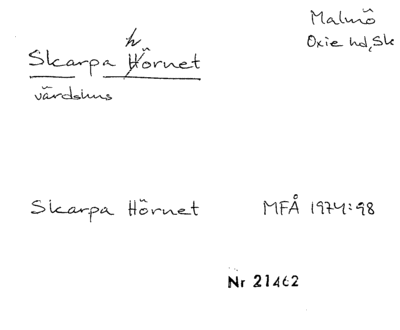 Malmö
Oxie hd, Sk
h
Skarpa Hörnet
värdshus
Skarpa Hörnet MFÅ 1974:98
Nr 21462